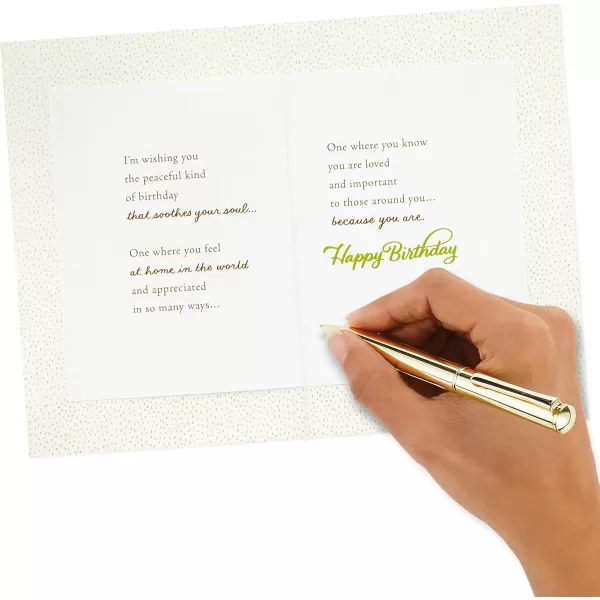 I'm wishing you
the peaceful kind
of birthday
that soothes your soul...
One where you feel
at home in the world
and appreciated
in so many ways...
One where you know
you are loved
and important
to those around you...
because you are.
Happy Birthday